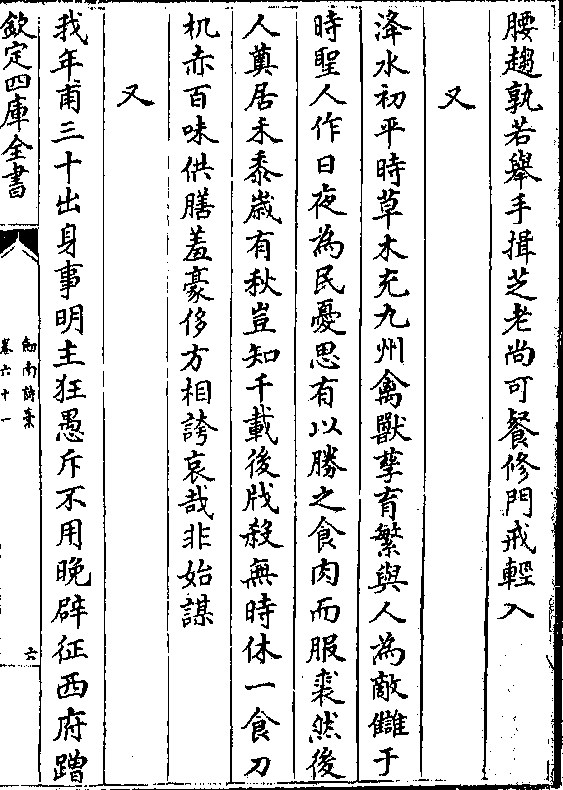 腰趨孰若舉手揖芝老尚可餐修門戒輕入
又
洚水初平時草木充九州禽獸孳育繁與人為敵讎于
時聖人作日夜為民憂思有以勝之食肉而服裘然後
人奠居禾黍歲有秋豈知千載後戕殺無時休一食刀
机赤百味供膳羞豪侈方相誇哀哉非始謀
又
我年甫三十出身事明主狂愚斥不用晚辟征西府蹭
欽定四庫全書
劍南詩稾
卷六十一
六